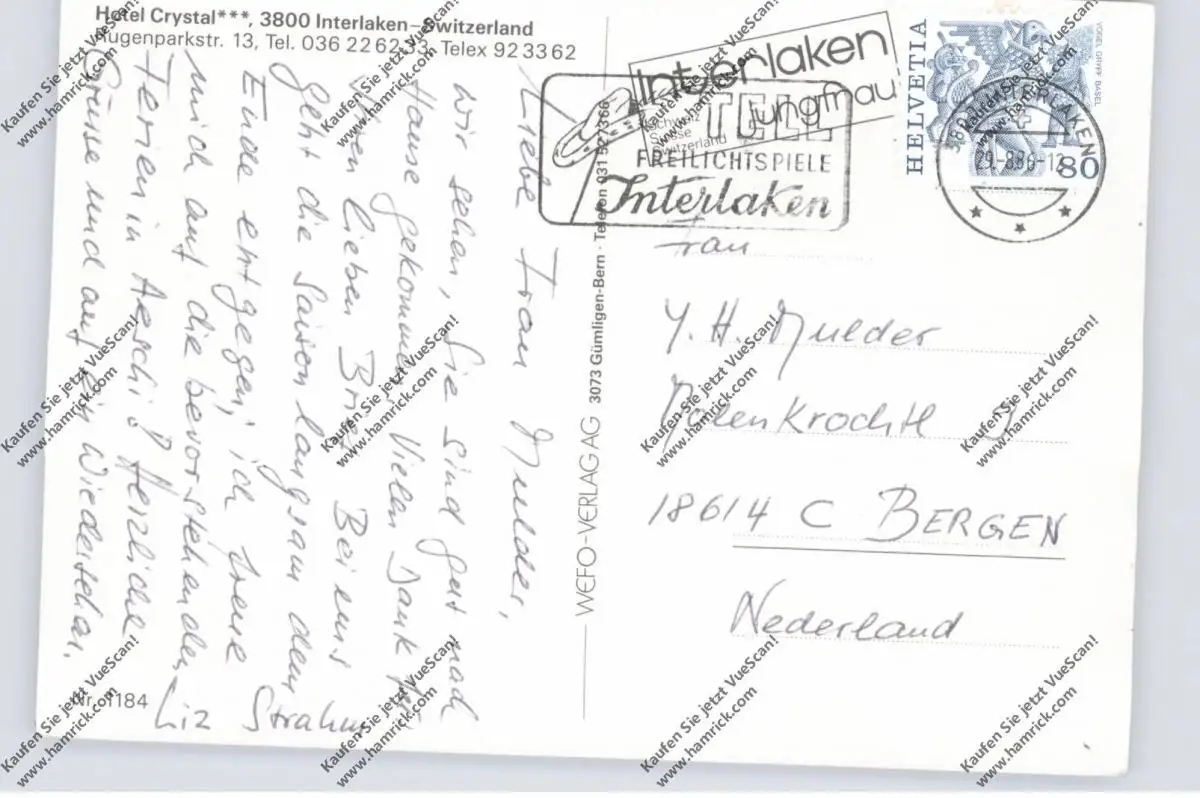 Hotel Crystal***, 3800 Interlaken–Switzerland
Rugenparkstr. 13, Tel. 036 22 62 33, Telex 92 33 62
Liebe Frau Mulder,
Wir sehen, Sie sind gut nach
Hause gekommen. Vielen Dank für
lieben Brief. Bei uns
geht die Saison langsam dem
Ende entgegen, ich freue
mich auf die bevorstehenden
Ferien in Aeschi! Herzliche
Grüsse und auf ein Wiedersehen.
Liz Strahm
Nr. 1184
WEFO-VERLAG AG 3073 Gümligen-Bern · Telefon 031 527366
Interlaken
Jungfrau
Schweiz
Suisse
Switzerland
TELL
FREILICHTSPIELE
Interlaken
HELVETIA
80
VOGEL GRYFF BASEL
3800 INTERLAKEN
29.-8.86-12
Frau
Y. H. Mulder
18614 C BERGEN
Nederland
Kaufen Sie jetzt VueScan!
www.hamrick.com